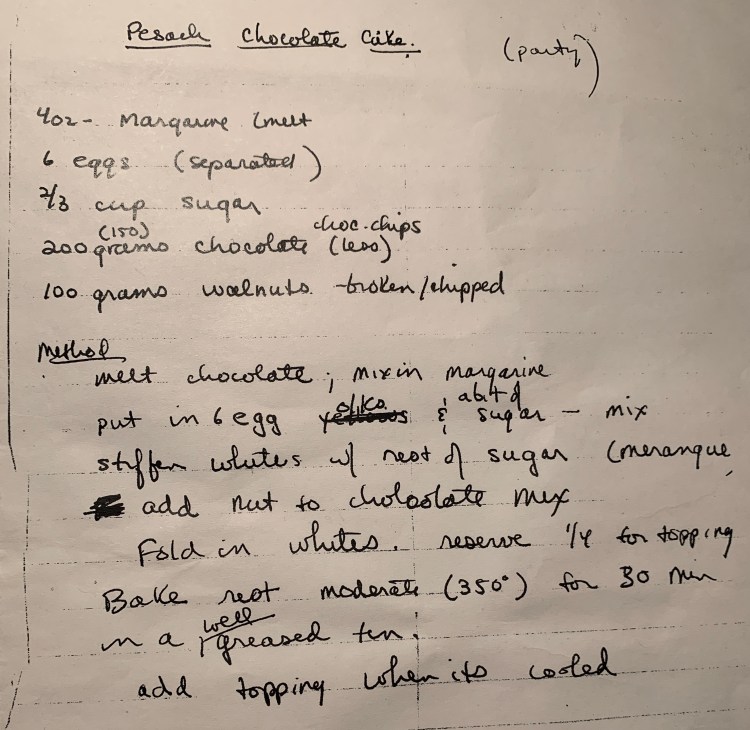 Pesach Chocolate Cake.
(party)
4oz - Margarine (melt
6 eggs (separated)
2/3 cup sugar
(150) choc. chips
200 grams chocolate (less)
100 grams walnuts broken/chipped
Method
melt chocolate; mix in margarine
olks a bit of
put in 6 egg & sugar - mix
stiffen whites w/ rest of sugar (merangue,
add nut to choloolate mix
Fold in whites. reserve 1/4 for topping
Bake rest moderate (350°) for 30 min
well
in a greased tin.
add topping when its cooled